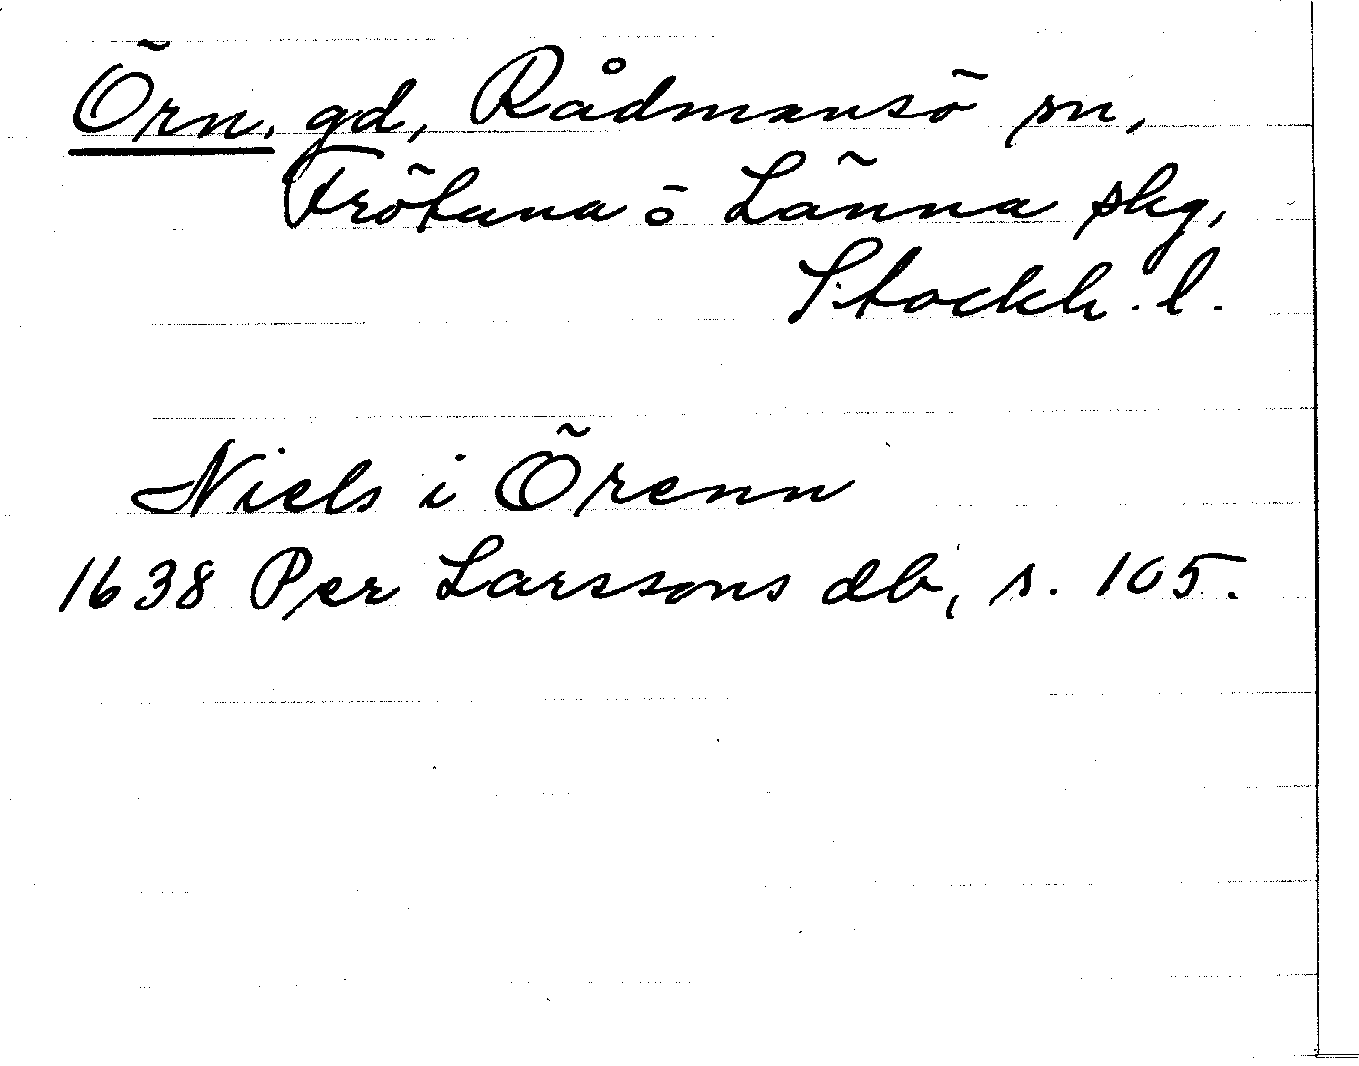 Örn, gd, Rådmansö sn,
Frötuna o Länna skg,
Stockh. l.
Niels i Örenn
1638 Per Larssons db, s. 105.